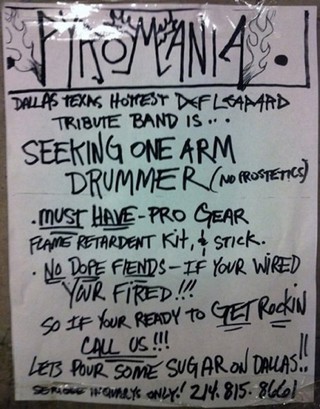 PYROMANIA.
DALLAS TEXAS HOTTEST DEF LEPPARD
TRIBUTE BAND IS...
SEEKING ONE ARM
DRUMMER (NO PROSTETICS)
· MUST HAVE - PRO GEAR
FLAME RETARDENT KIT, & STICK.
· NO DOPE FIENDS - IF YOUR WIRED
YOUR FIRED!!!
SO IF YOUR READY TO GET ROCKIN
CALL US!!!
LETS POUR SOME SUGAR ON DALLAS!!
SERIOUS INQUARYS ONLY! 214.815.8661